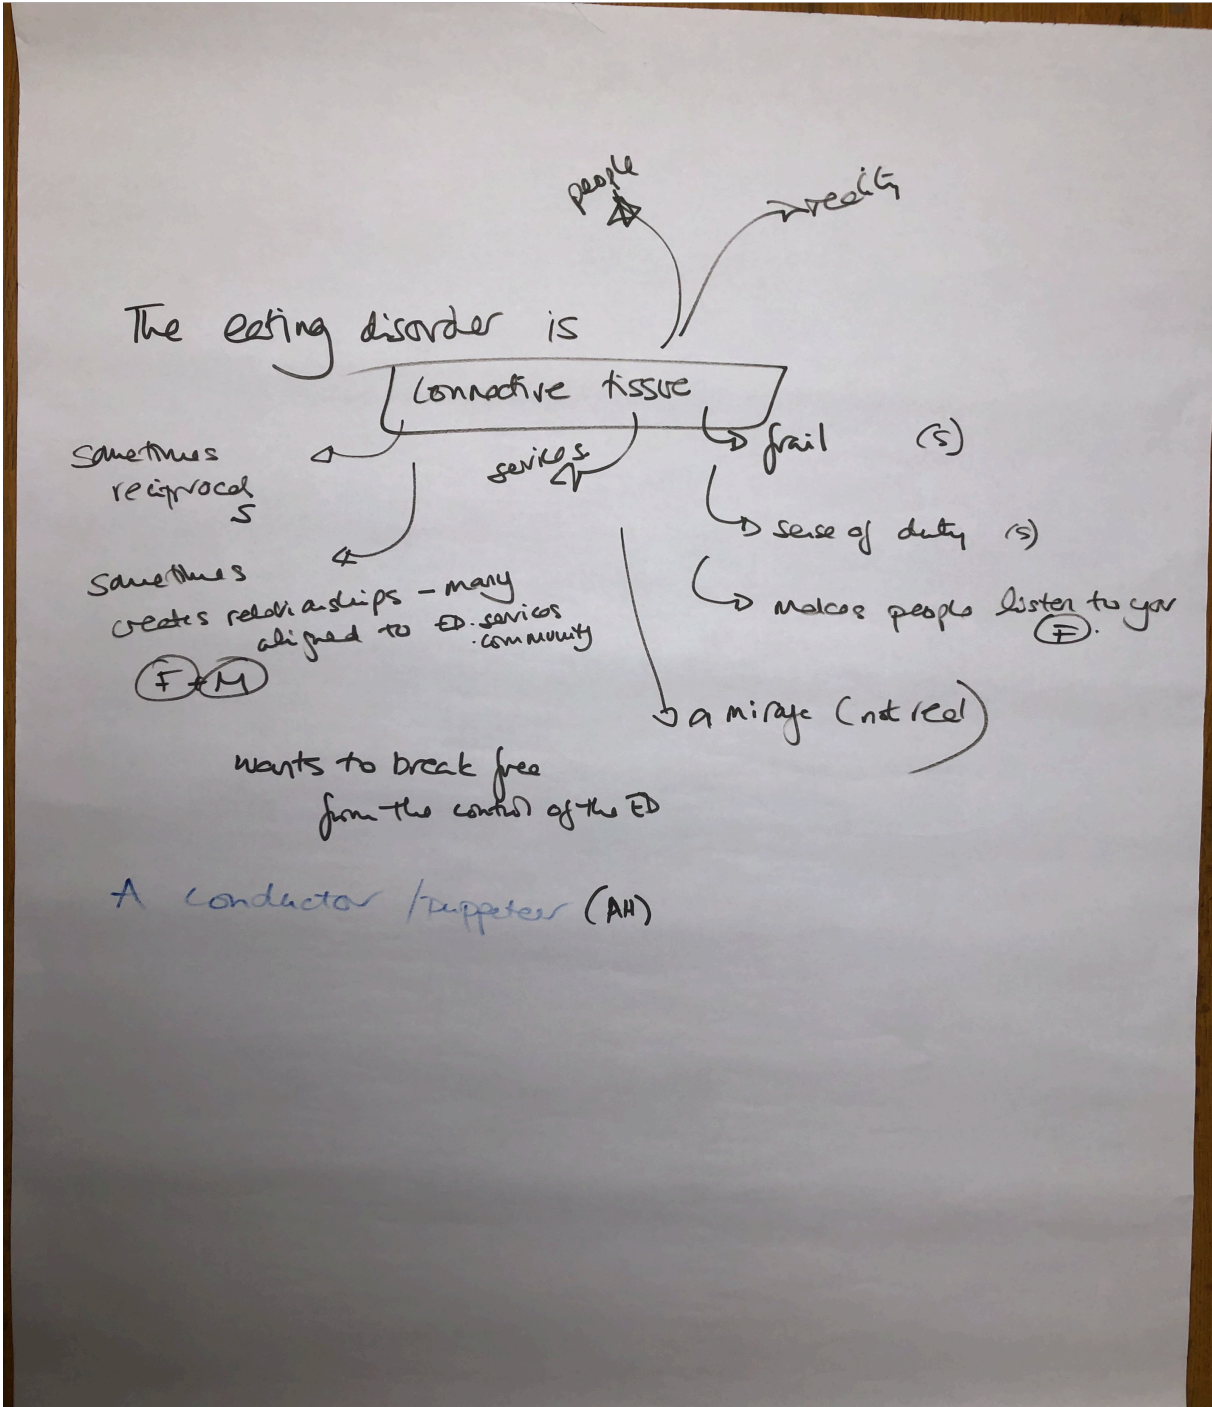 people
reality
The eating disorder is
connective tissue
sometimes
reciprocal
S
services
frail (S)
sense of duty (S)
makes people listen to you
F.
sometimes
creates relationships - many
aligned to ED. services
. community
F + M
a mirage (not real)
wants to break free
from the control of the ED
A conductor / puppeteer (AH)